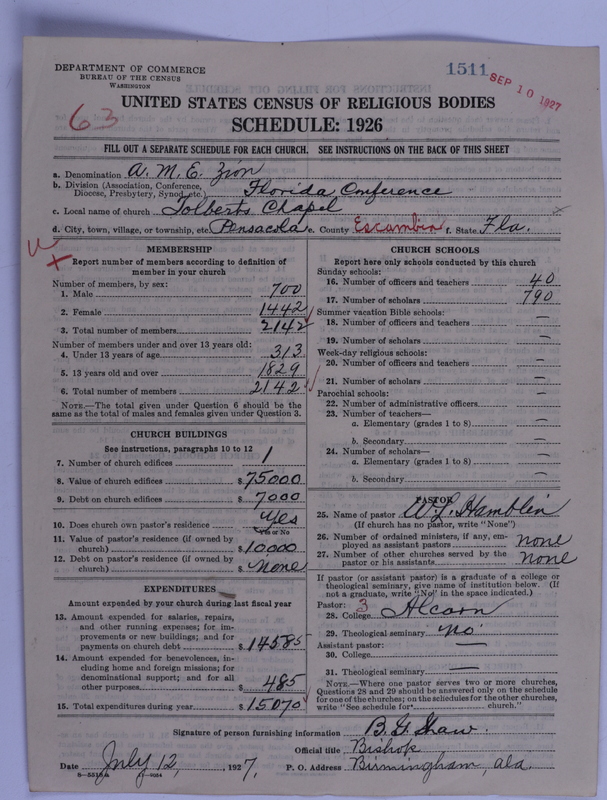 DEPARTMENT OF COMMERCE
BUREAU OF THE CENSUS
WASHINGTON
1511
SEP 10 1927
63
UNITED STATES CENSUS OF RELIGIOUS BODIES
SCHEDULE: 1926
FILL OUT A SEPARATE SCHEDULE FOR EACH CHURCH. SEE INSTRUCTIONS ON THE BACK OF THIS SHEET
a. Denomination A. M. E. Zion
b. Division (Association, Conference, Diocese, Presbytery, Synod, etc.) Florida Conference
c. Local name of church Tolberts Chapel
d. City, town, village, or township, etc. Pensacola e. County Escambia f. State Fla.
MEMBERSHIP
Report number of members according to definition of
member in your church
Number of members, by sex:
1. Male 700
2. Female 1442
3. Total number of members 2142
Number of members under and over 13 years old:
4. Under 13 years of age 313
5. 13 years old and over 1829
6. Total number of members 2142
NOTE.—The total given under Question 6 should be the
same as the total of males and females given under Question 3.
CHURCH BUILDINGS
See instructions, paragraphs 10 to 12
7. Number of church edifices 1
8. Value of church edifices $ 75000
9. Debt on church edifices $ 7000
10. Does church own pastor's residence Yes
Yes or No
11. Value of pastor's residence (if owned by
church) $ 10000
12. Debt on pastor's residence (if owned by
church) $ None
EXPENDITURES
Amount expended by your church during last fiscal year
13. Amount expended for salaries, repairs,
and other running expenses; for im-
provements or new buildings; and for
payments on church debt $ 14585
14. Amount expended for benevolences, in-
cluding home and foreign missions; for
denominational support; and for all
other purposes $ 485
15. Total expenditures during year $ 15070
CHURCH SCHOOLS
Report here only schools conducted by this church
Sunday schools:
16. Number of officers and teachers 40
17. Number of scholars 790
Summer vacation Bible schools:
18. Number of officers and teachers —
19. Number of scholars —
Week-day religious schools:
20. Number of officers and teachers —
21. Number of scholars —
Parochial schools:
22. Number of administrative officers —
23. Number of teachers—
a. Elementary (grades 1 to 8) —
b. Secondary —
24. Number of scholars—
a. Elementary (grades 1 to 8) —
b. Secondary —
PASTOR
25. Name of pastor W. L. Hamblin
(If church has no pastor, write "None")
26. Number of ordained ministers, if any, em-
ployed as assistant pastors none
27. Number of other churches served by the
pastor or his assistants none
If pastor (or assistant pastor) is a graduate of a college or
theological seminary, give name of institution below. (If
not a graduate, write "No" in the space indicated.)
Pastor: 3
28. College Alcorn
29. Theological seminary no
Assistant pastor:
30. College —
31. Theological seminary —
NOTE.—Where one pastor serves two or more churches,
Questions 28 and 29 should be answered only on the schedule
for one of the churches; on the schedules for the other churches,
write "See schedule for church."
Signature of person furnishing information B. G. Shaw.
Official title Bishop
Date July 12, 1927. P. O. Address Birmingham, Ala.